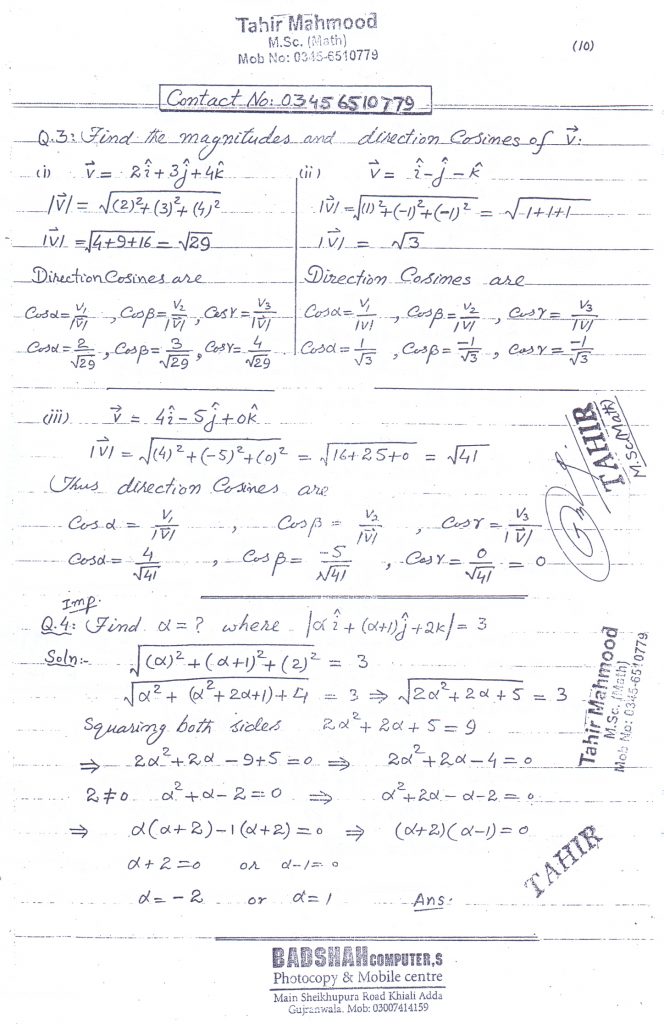 Tahir Mahmood
M.Sc. (Math)
Mob No: 0345-6510779
(10)
Contact No: 03456510779
Q.3: Find the magnitudes and direction Cosines of v⃗.
(i) v⃗ = 2î+3ĵ+4k̂
|v⃗| = √((2)²+(3)²+(4)²)
|v⃗| = √(4+9+16) = √29
Direction Cosines are
Cosα = V₁/|v⃗| , Cosβ = V₂/|v⃗| , Cosγ = V₃/|v⃗|
Cosα = 2/√29 , Cosβ = 3/√29 , Cosγ = 4/√29
(ii) v⃗ = î-ĵ-k̂
|v⃗| = √((1)²+(-1)²+(-1)²) = √(1+1+1)
|v⃗| = √3
Direction Cosines are
Cosα = V₁/|V| , Cosβ = V₂/|V| , Cosγ = V₃/|V|
Cosα = 1/√3 , Cosβ = -1/√3 , Cosγ = -1/√3
(iii) v⃗ = 4î-5ĵ+0k̂
|v⃗| = √((4)²+(-5)²+(0)²) = √(16+25+0) = √41
Thus direction Cosines are
Cosα = V₁/|v⃗| , Cosβ = V₂/|v⃗| , Cosγ = V₃/|v⃗|
Cosα = 4/√41 , Cosβ = -5/√41 , Cosγ = 0/√41 = 0
TAHIR
M.Sc(Math)
Imp.
Q.4: Find α = ? where |αî+(α+1)ĵ+2k| = 3
Soln:- √((α)²+(α+1)²+(2)²) = 3
√(α²+(α²+2α+1)+4) = 3 ⇒ √(2α²+2α+5) = 3
Squaring both sides 2α²+2α+5 = 9
⇒ 2α²+2α-9+5 = 0 ⇒ 2α²+2α-4 = 0
2≠0 α²+α-2 = 0 ⇒ α²+2α-α-2 = 0
⇒ α(α+2)-1(α+2) = 0 ⇒ (α+2)(α-1) = 0
α+2 = 0 or α-1 = 0
α = -2 or α = 1 Ans:
Tahir Mahmood
M.Sc. (Math)
Mob No: 0345-6510779
TAHIR
BADSHAH COMPUTER,S
Photocopy & Mobile centre
Main Sheikhupura Road Khiali Adda
Gujranwala. Mob: 03007414159